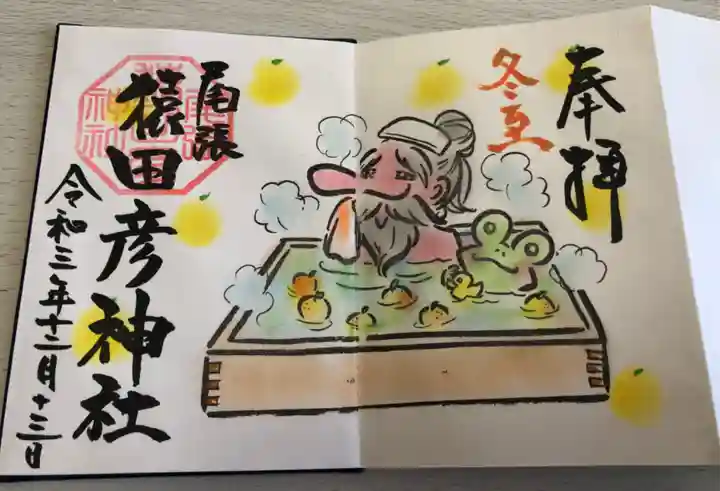 奉拝
冬至
尾張
猿田彦神社
令和三年十二月十三日